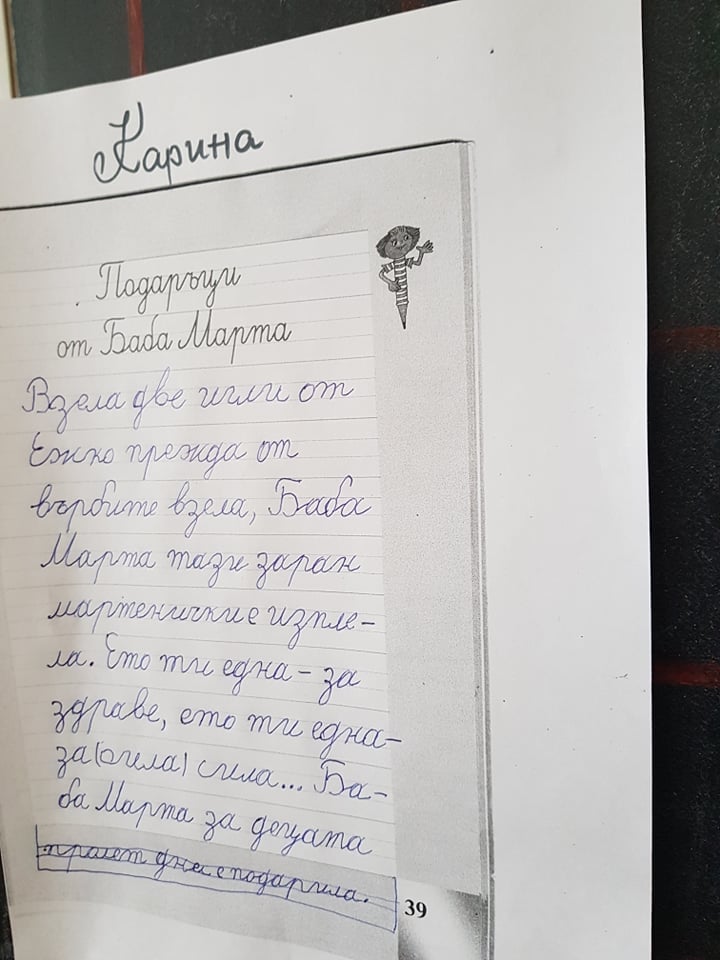 Карина
Подаръци
от Баба Марта
Взела две игли от
Ежко прежда от
върбите взела, Баба
Марта тази заран
мартенички е изпле-
ла. Ето ти една - за
здраве, ето ти една -
за (сила) сила... Ба-
ба Марта за децата
днес е подарила.
39